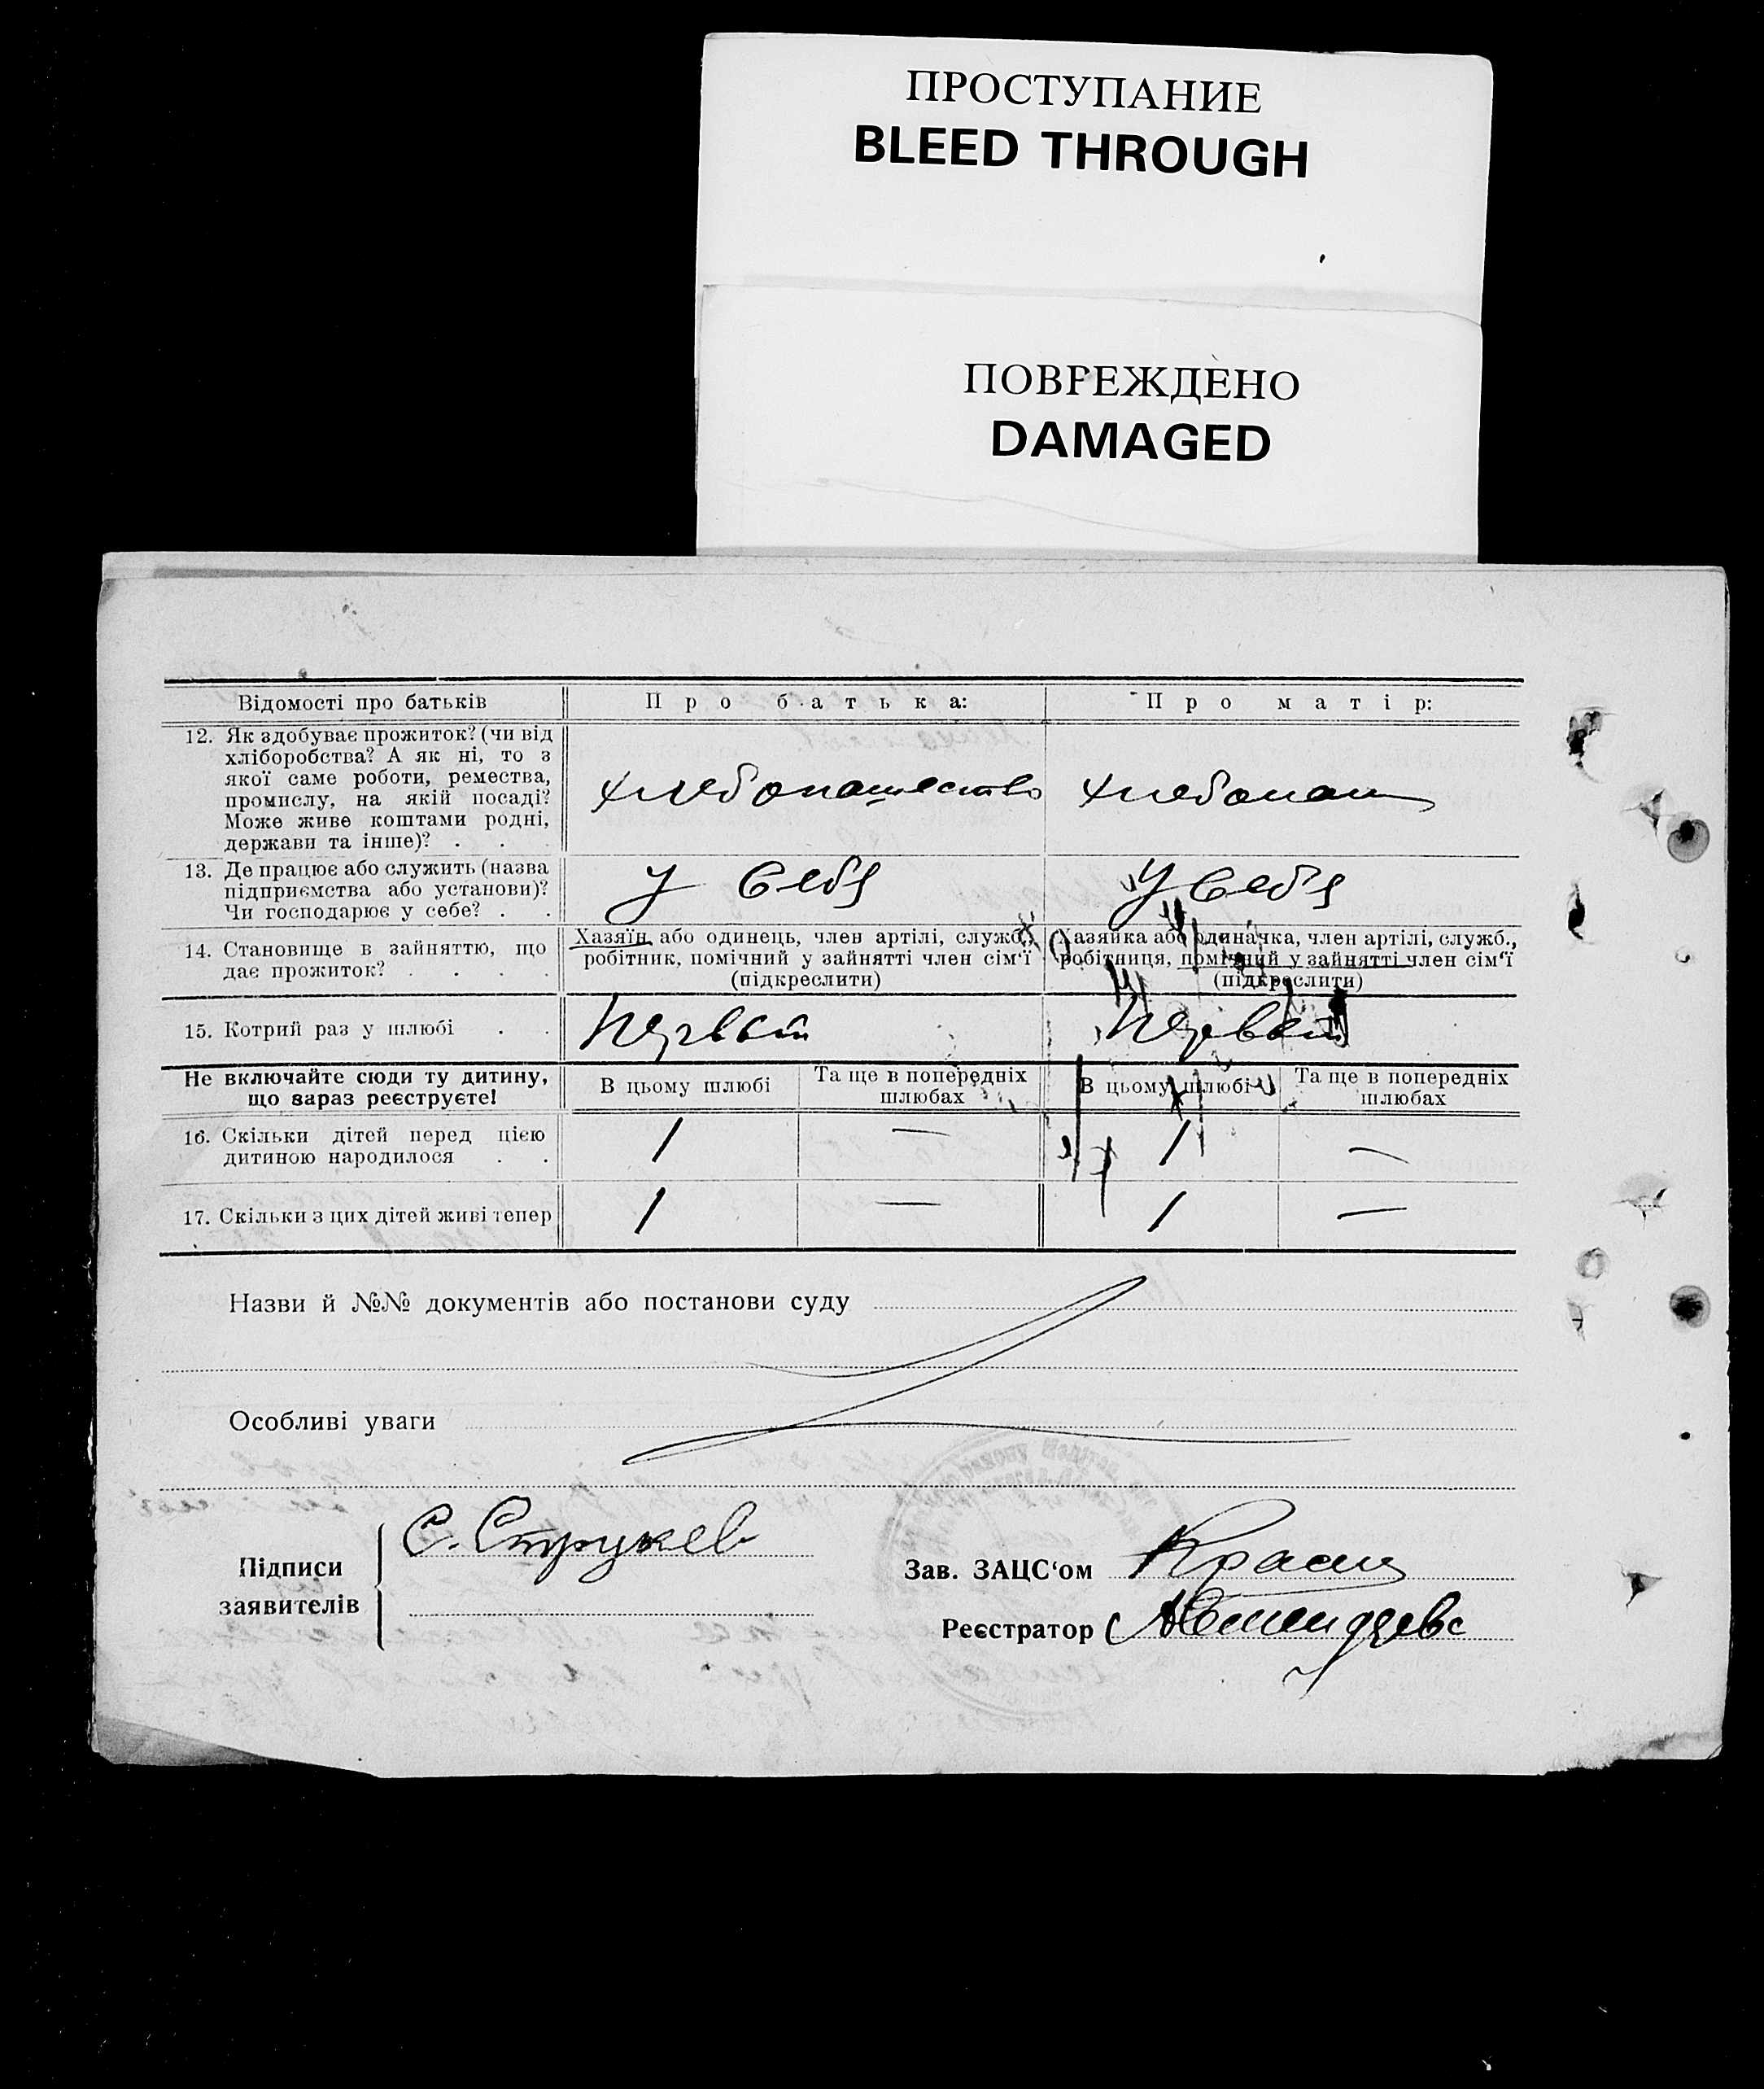 ПРОСТУПАНИЕ
BLEED THROUGH
ПОВРЕЖДЕНО
DAMAGED
Відомості про батьків
Про батька:
Про матір:
12. Як здобуває прожиток? (чи від
хліборобства? А як ні, то з
якої саме роботи, ремества,
промислу, на якій посаді?
Може живе коштами родні,
держави та інше)? . . .
хлебопашество
хлебопаш
13. Де працює або служить (назва
підприємства або установи)?
Чи господарює у себе? . .
у себя
у себя
14. Становище в зайняттю, що
дає прожиток? . . . .
Хазяїн або одинець, член артілі, служб.,
робітник, помічний у зайнятті член сім'ї
(підкреслити)
Хазяйка або одиначка, член артілі, служб.,
робітниця, помічний у зайнятті член сім'ї
(підкреслити)
15. Котрий раз у шлюбі . .
Первый
Первый
Не включайте сюди ту дитину,
що зараз реєструєте!
В цьому шлюбі
Та ще в попередніх
шлюбах
В цьому шлюбі
Та ще в попередніх
шлюбах
16. Скільки дітей перед цією
дитиною народилося . .
1
—
1
—
17. Скільки з цих дітей живі тепер
1
—
1
—
Назви й №№ документів або постанови суду
Особливі уваги
Підписи
заявителів
С. Струкев
Зав. ЗАЦС'ом
Реєстратор